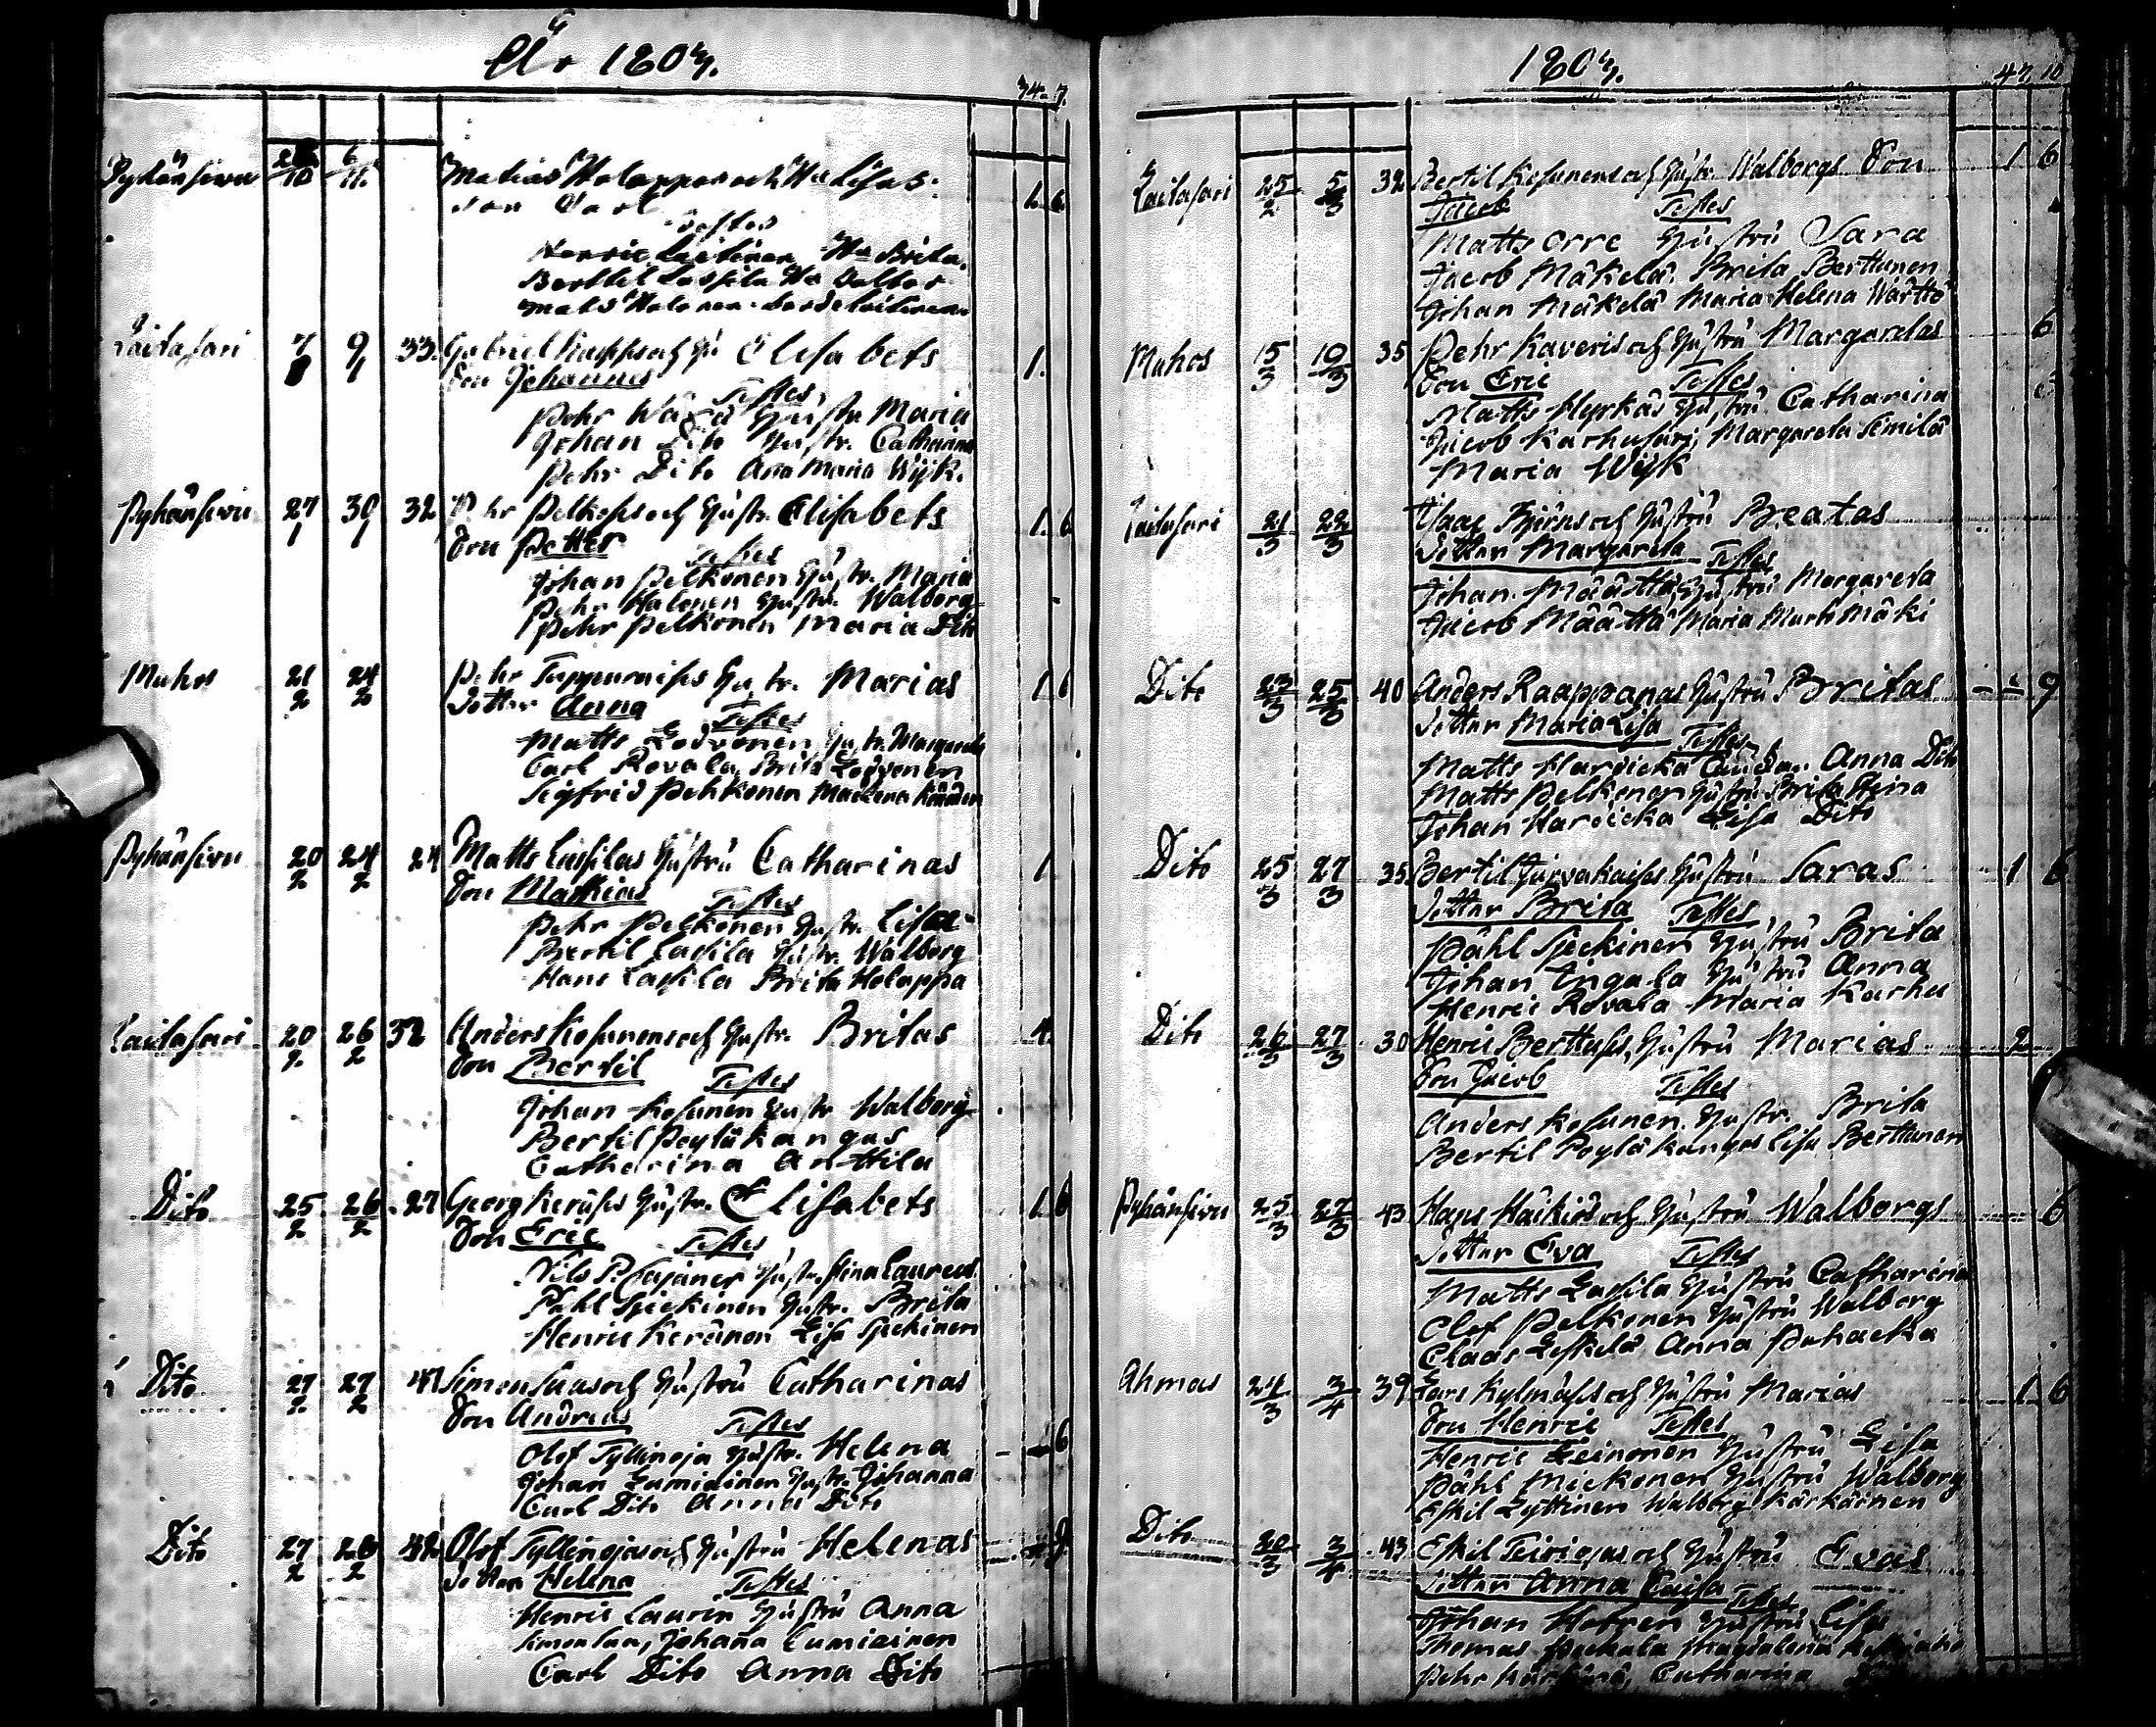 År 1803.
34. 7.
Pyhänsivu 28/10 6/11. Matias Holappas och Hu Lisas
son Carl 1. 6
Testes
Henric Leitinen Hu Brita.
Berthil Lassila Hu Valbor
Mats Holonen
Laitasari 7/1 9/1 33. Gabriel Kapps och Hu Elisabets 1.
Son Johannes
Testes
Pehr Hustr. Maria
Johan Dito Hustr. Catharina
Pehr Dito Anna Maria Wijk.
Pyhänsivu 27/1 30/1 32 Pehr Pelkoses och Hustr. Elisabets 1. 6
Son Petter
Testes
Johan Pelkonen Hustr. Maria
Pehr Halonen Hustr. Walborg
Pehr Pelkonen Maria Dito
Muhos 21/2 24/2 Pehr Tuppuraises Hustr. Marias 1 6
Dotter Anna
Testes
Matts Hustr. Margareta
Carl Rovala, Brita
Sigfrid Pehkonen
Pyhänsivu 20/2 24/2 24 Matts Lassilas Hustru Catharinas 1
Son Mathias
Testes
Pehr Pelkonen Hustr. Lisa
Bertil Lassila Hustr. Walborg
Hans Lassila Brita Holappa
Laitasari 20/2 26/2 32 Anders Kosunens och Hustr. Britas 4.
Son Bertil
Testes
Johan Kosunen Hustr Walborg
Bertil Poyläkangas
Catharina Anttila
Dito 25/2 26/2 27 Georg Keräses Hustr. Elisabets 1. 6
Son Eric
Testes
Nils P. Cajaner Hustr. Stina Laureus
Påhl Spickinen Hustr. Brita
Henric Keränen Lisa Spickinen
Dito 27/2 27/2 47 Simon Suas och Hustru Catharinas
Son Andreas
Testes
Olof Tyllinoja Hustr. Helena 6
Johan Lumiainen Hustr. Johanna
Carl Dito Anna Dito
Dito 27/2 28/2 42 Olof Tyllinojas och Hustru Helenas 9
Dotter Helena
Testes
Henric Laurin Hustru Anna
Simon Sua, Johana Lumiainen
Carl Dito Anna Dito
1803.
42 10
Laitasari 25/2 5/3 32 Bertil Kosunens och Hustr. Walborgs Son 1 6
Jacob
Testes
Matts Orre Hustru Sara
Jacob Mäkelä. Brita Berttunen
Johan Mäkelä Maria Helena Warttö
Muhos 15/3 19/3 35 Pehr Kaveris och Hustru Margaretas 6
Son Eric
Testes
Matts Hyrkäs Hustru Catharina
Jacob Karhusari, Margareta Semilä
Maria Wijk
Laitasari 21/3 22/3 Isaac Björns och Hustru Beatas
Dotter Margareta
Testes
Johan Määttä Hustru Margareta
Jacob Määttä Maria Murtomäki
Dito 23/3 25/3 40 Anders Raappanas Hustru Britas 9
Dotter Maria Lisa
Testes
Matts Hardicka Anna Dito
Matts Pelkonen Hustru Brita Stina
Johan Hardicka Lisa Dito
Dito 25/3 27/3 35 Bertil Jurvakaises Hustru Saras 1 6
Dotter Brita
Testes
Påhl Spickinen Hustru Brita
Johan Ingala Hustru Anna
Henric Rovala Maria Karhu
Dito 26/3 27/3 30 Henric Berttuses, Hustru Marias 2
Son Jacob
Testes
Anders Kosunen. Hustr. Brita
Bertil Poyläkangas Lisa Berttunen
Pyhänsivu 25/3 27/3 43 Hans Häikiös och Hustru Walborgs 6
Dotter Eva
Testes
Matts Lassila Hustru Catharina
Olof Pelkonen Hustru Walborg
Claas Leskelä Anna Puhacka
Ahmas 24/3 3/4 39 Lars Kylmäses och Hustru Marias 1 6
Son Henric
Testes
Henric Leinonen Hustru Lisa
Påhl Mickonen Hustru Walborg
Eskil Lyttinen Walborg Kärkäinen
Dito 20/3 3/4 43 Eskil Teiriojas och Hustru Evas
Dotter Anna Caisa
Testes
Johan Hustru Lisa
Thomas Magdalena
Pehr Catharina